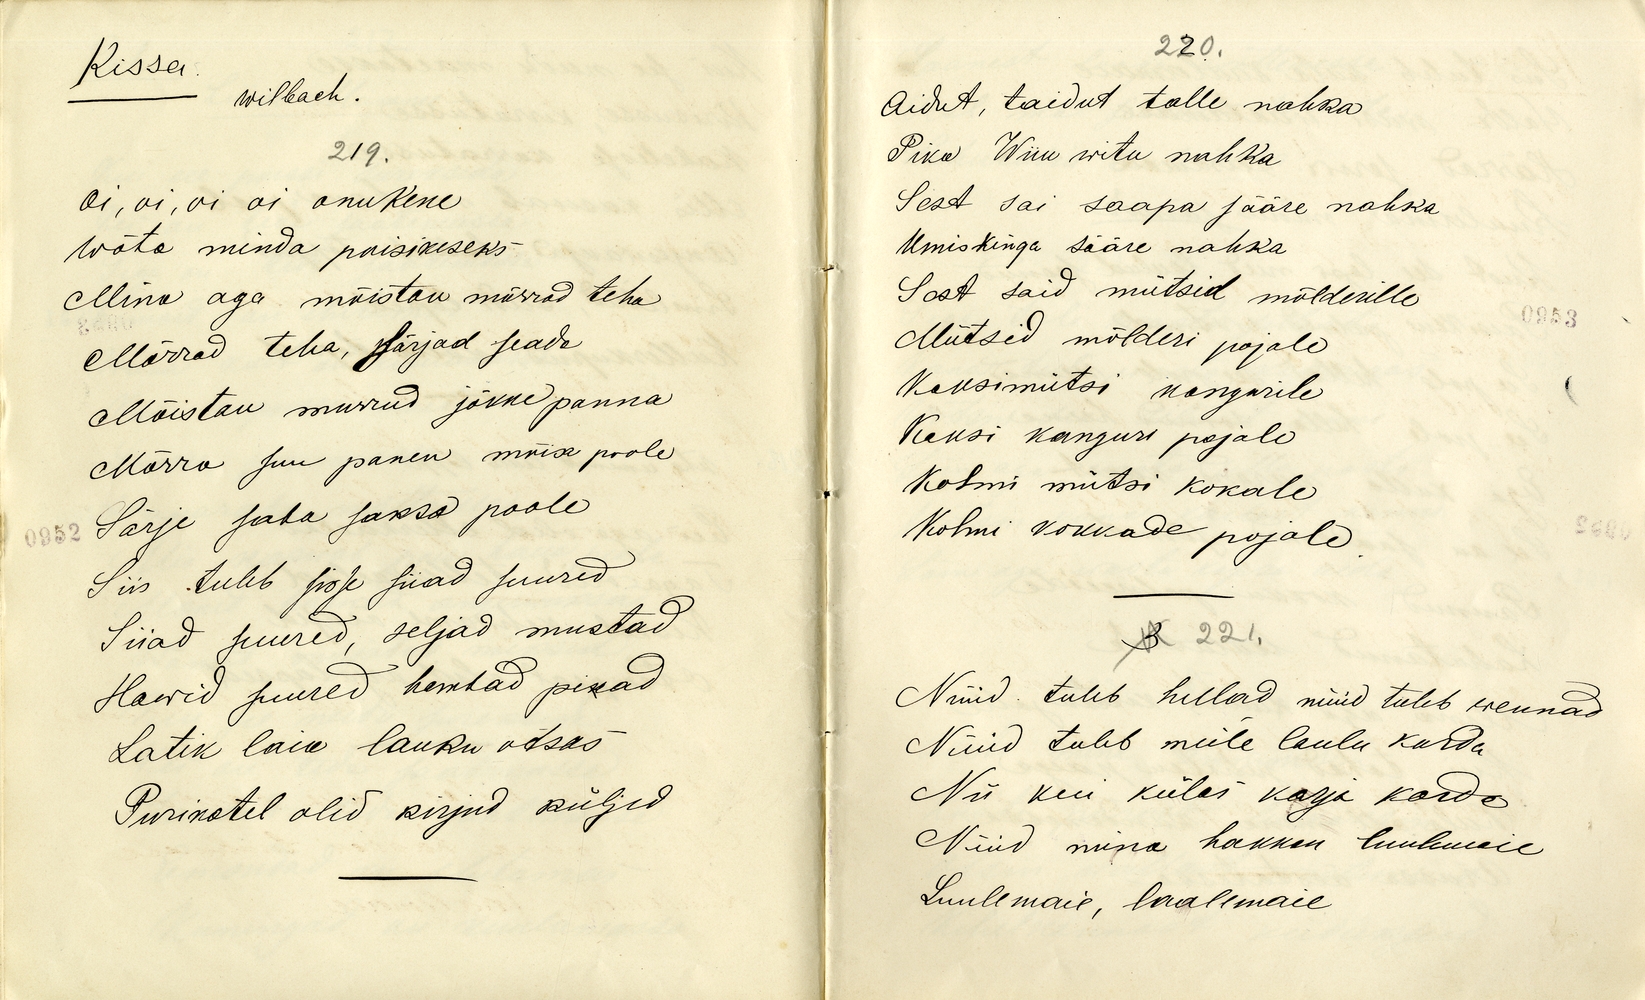 Kissa.
Wilbach.
219.
Oi, oi, oi oi onukene
Wõta minda poisikeseks
Mina aga mõistan mõrrad teha
Mõrrad teha, särjad seada
Mõistan murrud jõkke panna
Mõrra suu panen mõisa poole
Särje saba saksa poole
Siis tuleb sisse siiad suured
Siiad suured, seljad mustad
Hawid suured hambad pikad
Latik laia lauku otsas
Purikatel olid kirjud küljed
0952
220.
Aidut, taidut talle nahka
Pika Wiiu witu nahka
Sest sai saapa sääre nahka
Umiskinga sääre nahka
Sest said mütsid mõlderille
Mütsid mõlderi pojale
Kaksimütsi kangurile
Kaksi kanguri pojale
Kolmi mütsi kokale
Kolmi kokkade pojale.
0953
221.
Nüüd tuleb hellad nüüd tuleb wennad
Nüüd tuleb meile laulu korda
Nii kui külas karja korda
Nüüd mina hakkan luulemaie
Luulemaie, laalemaie